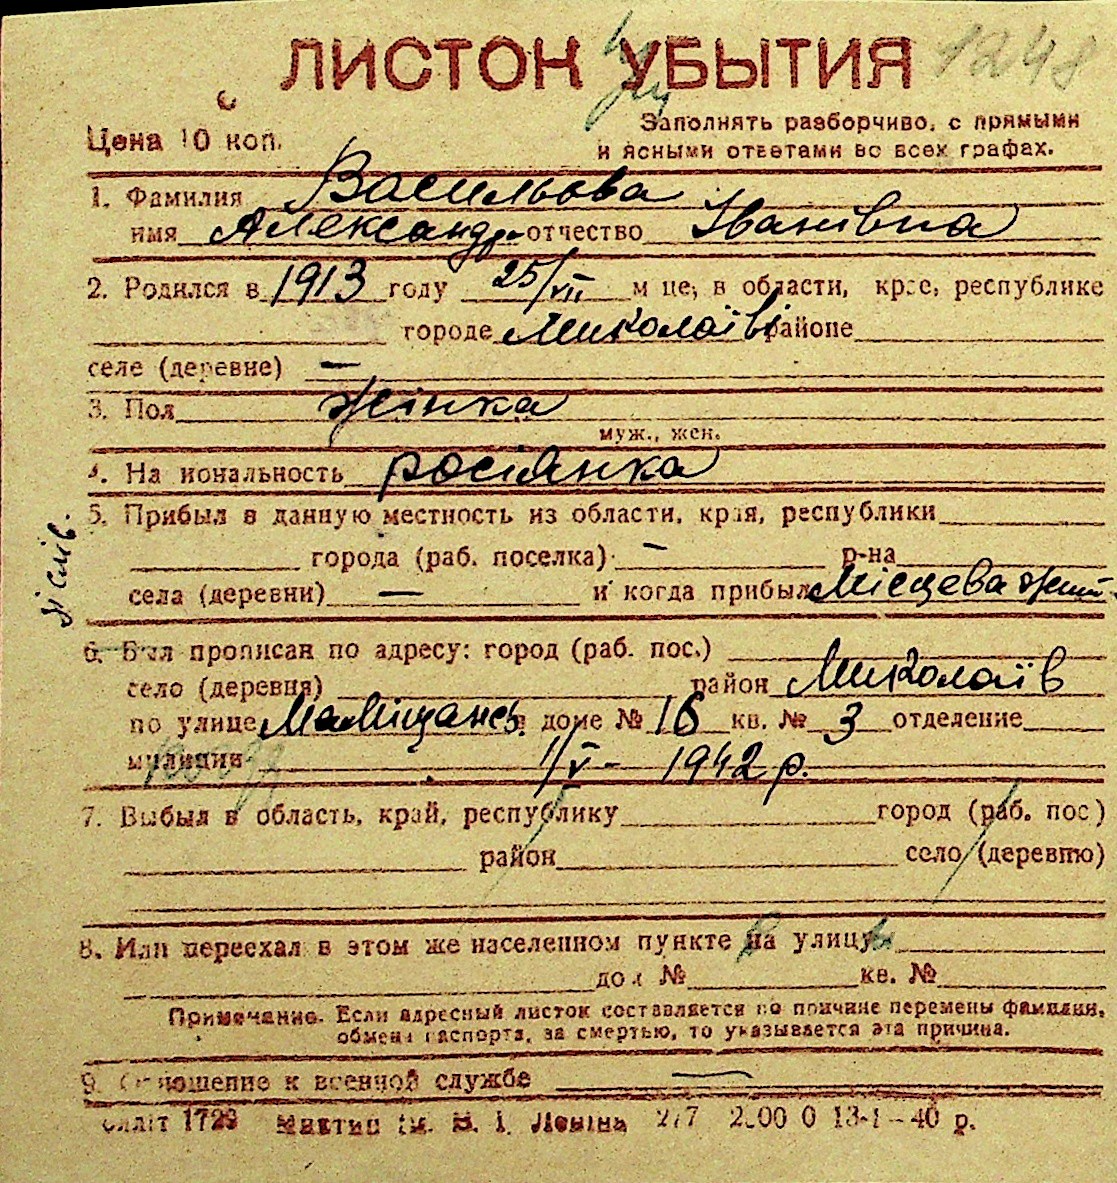 ЛИСТОК УБЫТИЯ 1248
Цена 10 коп.
Заполнять разборчиво, с прямыми
и ясными ответами во всех графах.
1. Фамилия Васильова
имя Александр отчество Іванівна
2. Родился в 1913 году 25/VII м це, в области, крае, республике
городе Миколаїві районе
селе (деревне) —
3. Пол жінка
муж., жен.
4. На иональность росіянка
5. Прибыл в данную местность из области, края, республики
города (раб. поселка) — р-на
села (деревни) — и когда прибыл Місцева жит
6. Был прописан по адресу: город (раб. пос.)
село (деревня) район Миколаїв
по улице в доме № 16 кв. № 3 отделение
милиции 1/V - 1942 р.
7. Выбыл в область, край, республику город (раб. пос)
район село (деревню)
8. Или переехал в этом же населенном пункте на улицу
дом № кв. №
Примечание. Если адресный листок составляется по причине перемены фамилии,
обмена паспорта, за смертью, то указывается эта причина.
9. Отношение к военной службе —
1729 ім. В. І. Леніна 277 2.00 0 13-1-40 р.